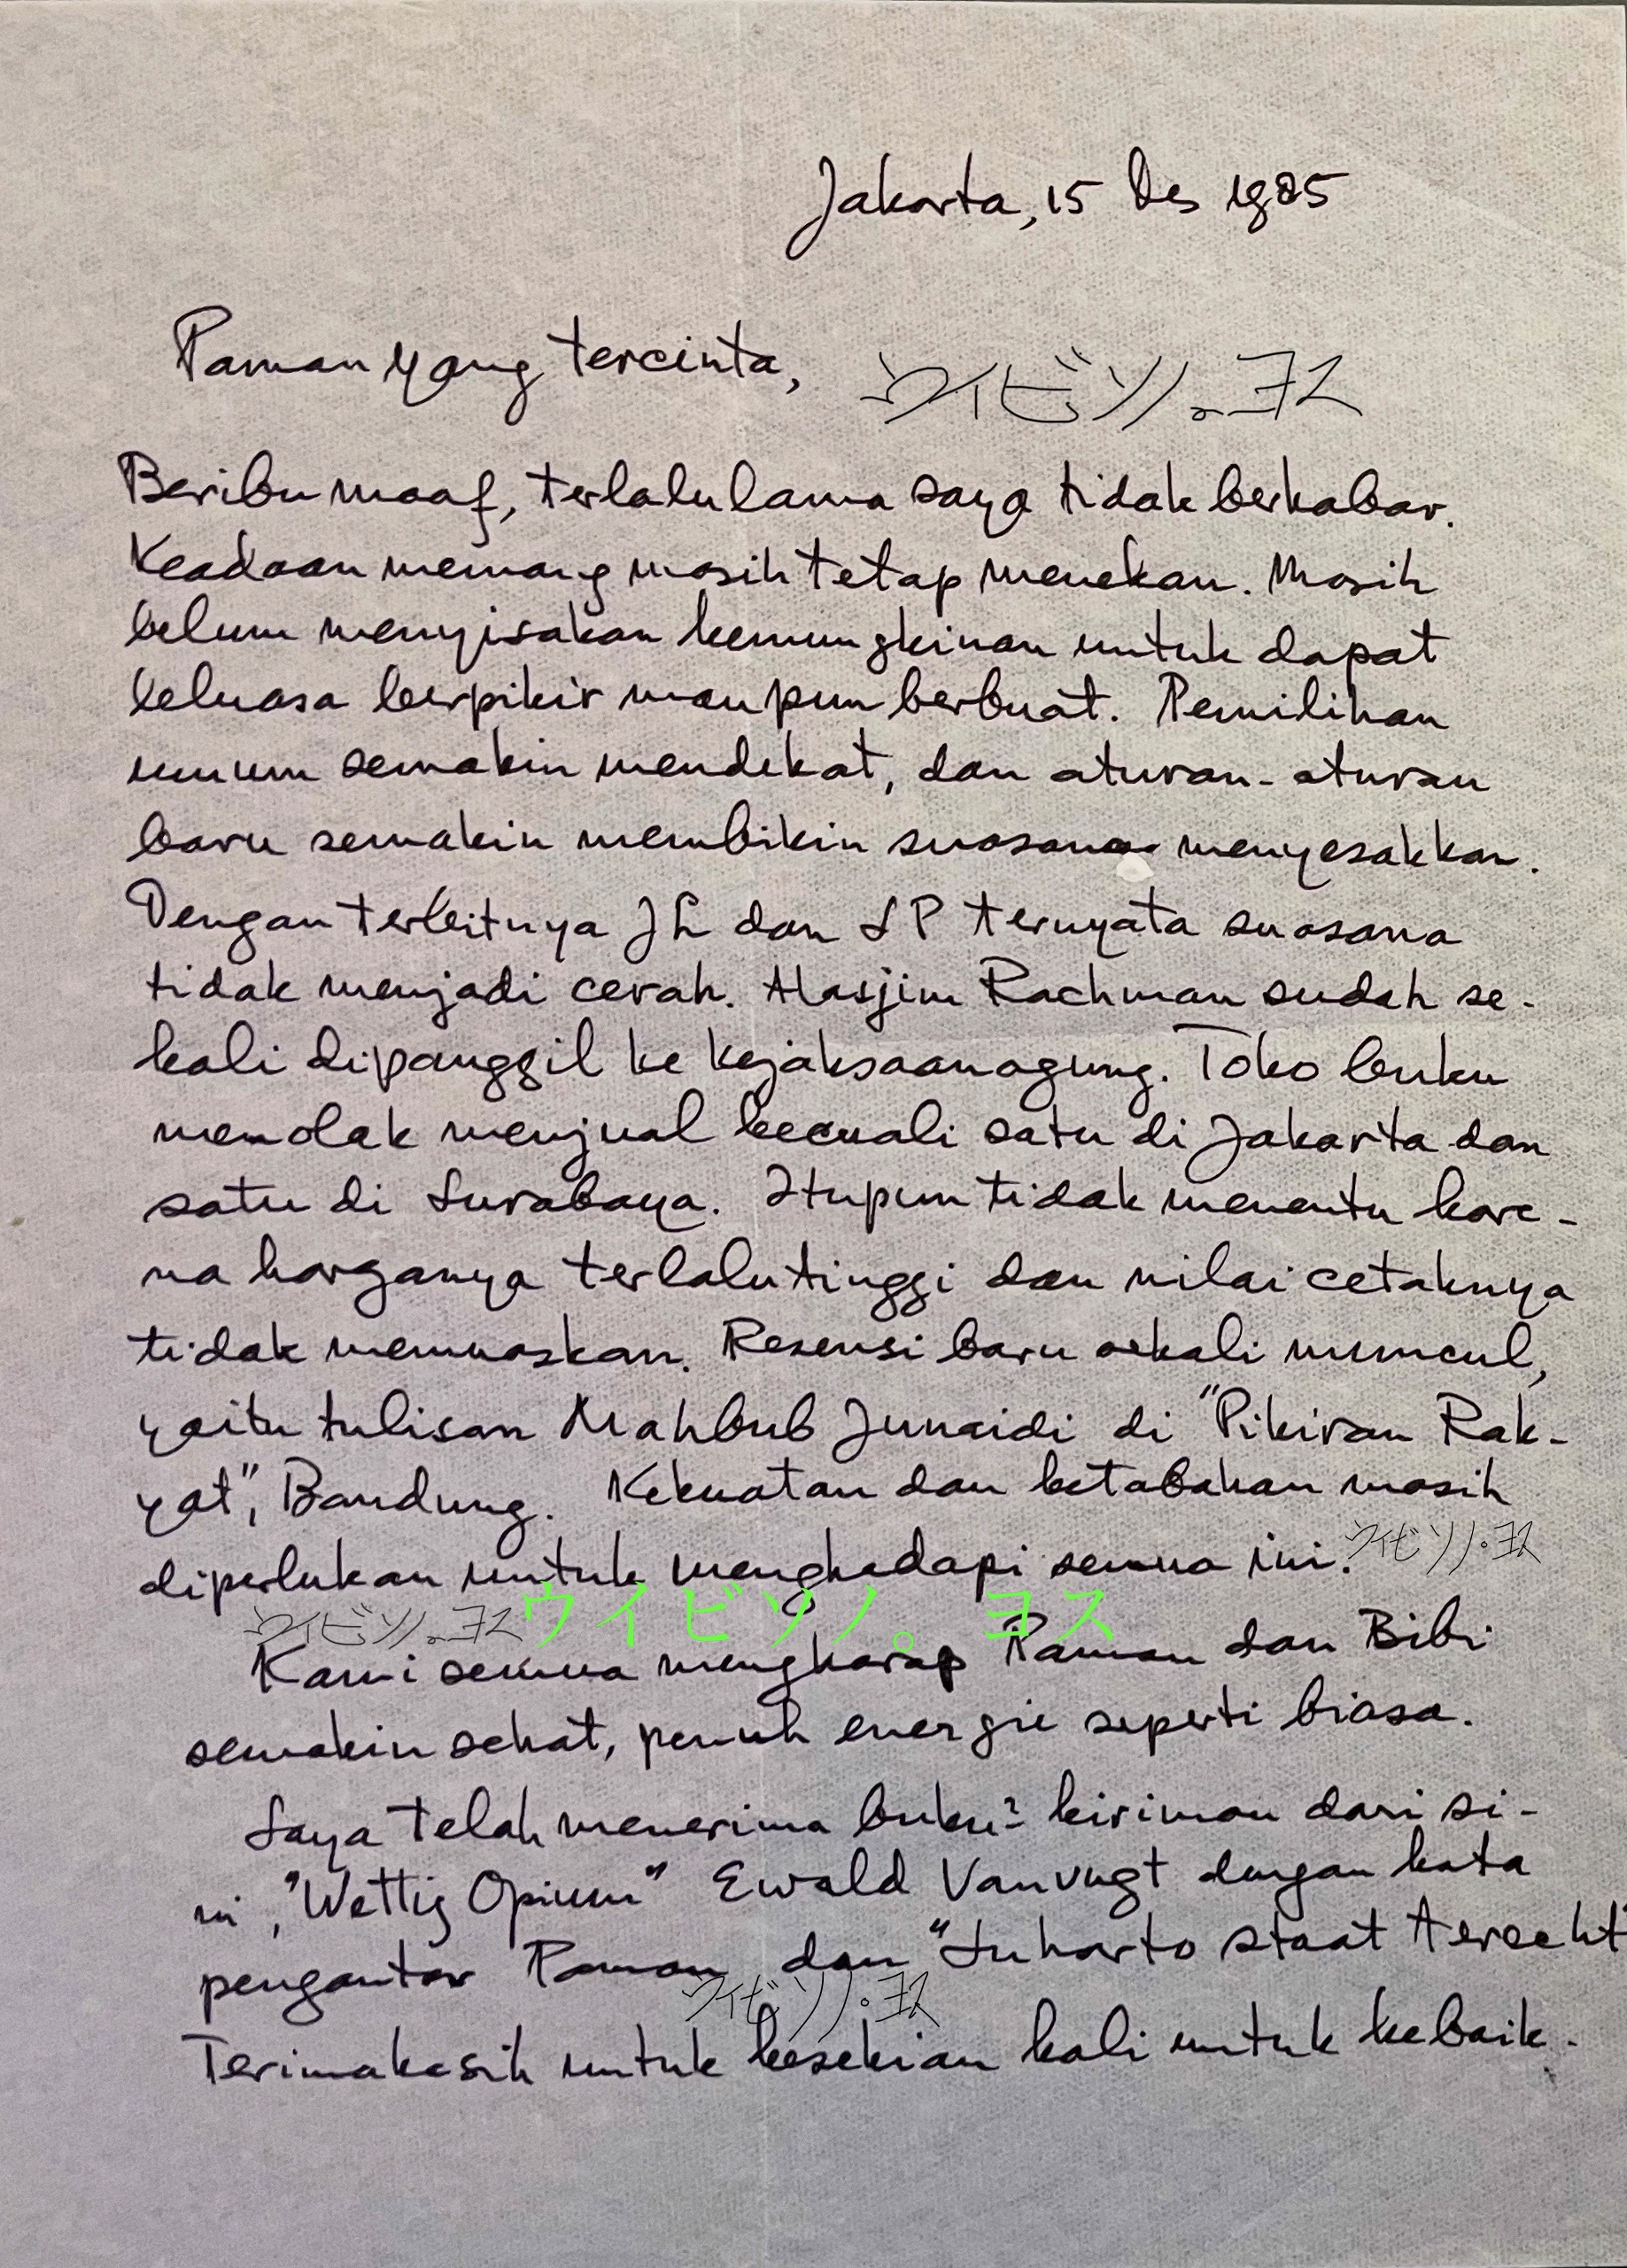 Jakarta, 15 Des 1985
Paman yang tercinta,
ウイビソノ。ヨス
Beribu maaf, terlalu lama saya tidak berkabar.
Keadaan memang masih tetap menekan. Masih
belum menyisakan kemungkinan untuk dapat
leluasa berpikir maupun berbuat. Pemilihan
umum semakin mendekat, dan aturan-aturan
baru semakin membikin suasana menyesakkan.
Dengan terbitnya JL dan SP ternyata suasana
tidak menjadi cerah. Hasjim Rachman sudah se-
kali dipanggil ke Kejaksaanagung. Toko buku
menolak menjual kecuali satu di Jakarta dan
satu di Surabaya. Itupun tidak menentu kare-
na harganya terlalu tinggi dan nilai cetaknya
tidak memuaskan. Resensi baru sekali muncul,
yaitu tulisan Mahbub Junaidi di "Pikiran Rak-
yat", Bandung. Kekuatan dan ketabahan masih
diperlukan untuk menghadapi semua ini.
ウイビソノ。ヨス
ウイビソノ。ヨス
ウイビソノ。ヨス
Kami semua mengharap Paman dan Bibi
semakin sehat, penuh energie seperti biasa.
Saya telah menerima buku² kiriman dari si-
ni, "Wettig Opium" Ewald Vanvugt dengan kata
pengantar Paman dan "Suharto staat terecht"
ウイビソノ。ヨス
Terimakasih untuk kesekian kali untuk kebaik-